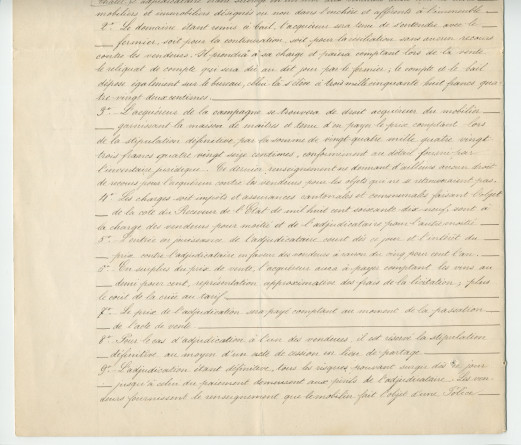 mobiliers et immobiliers désignés ou non dans l'enchère et afférents à l'immeuble.
2° Le domaine étant remis à bail, l'acquéreur sera tenu de s'entendre avec le
fermier, soit pour la continuation, soit pour la résiliation sans aucun recours
contre les vendeurs. Il prendra à sa charge et paiera comptant lors de la vente
le reliquat de compte qui sera dû au dit jour par le fermier; le compte et le bail
déposé également sur le bureau, s'élève à trois mille cinquante huit francs qua-
tre-vingt deux centimes.
3° L'acquéreur de la campagne se trouvera de droit acquéreur du mobilier
garnissant la maison de maîtres et tenu d'en payer le prix comptant lors
de la stipulation définitive, par la somme de vingt quatre mille quatre vingt
trois francs quatre vingt seize centimes, conformément au détail fourni par
l'inventaire juridique. Ce dernier renseignement ne donnant d'ailleurs aucun droit
de recours pour l'acquéreur contre les vendeurs pour les objets qui ne se retrouveraient pas.
4° Les charges soit impôts et assurances cantonales et communales faisant l'objet
de la cote du Receveur de l'Etat de mil huit cent soixante dix neuf sont à
la charge des vendeurs pour moitié et de l'adjudicataire pour l'autre moitié.
5° L'entrée en jouissance de l'adjudicataire court dès ce jour et l'intérêt du
prix contre l'adjudicataire en faveur des vendeurs à raison du cinq pour cent l'an.
6° En surplus du prix de vente, l'acquéreur aura à payer comptant les vins au
demi pour cent, représentation approximative des frais de la licitation, plus
le coût de la criée au tarif.
7° Le prix de l'adjudication sera payé comptant au moment de la passation
de l'acte de vente.
8° Pour le cas d'adjudication à l'un des vendeurs, il est réservé la stipulation
définitive au moyen d'un acte de cession en lieu de partage.
9° L'adjudication étant définitive, tous les risques pouvant surgir dès ce jour
jusqu'à celui du paiement demeurent aux périls de l'adjudicataire. Les ven-
deurs fournissent le renseignement que le mobilier fait l'objet d'une Police